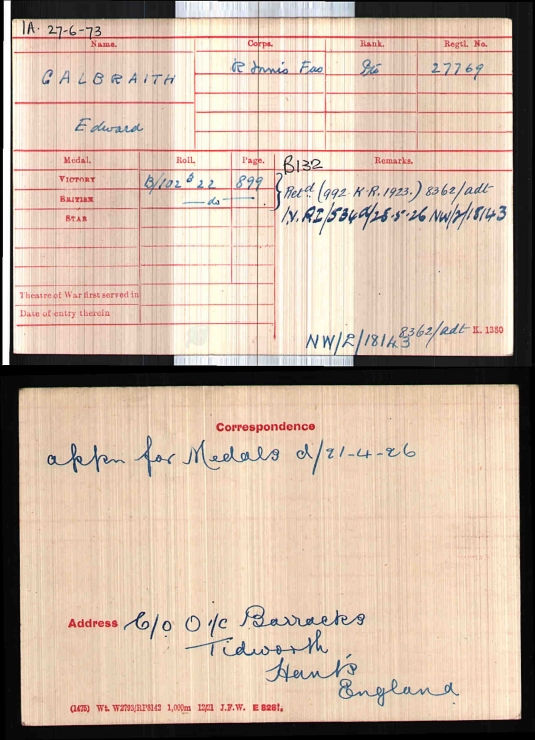 IA. 27-6-73
Name. Corps. Rank. Regtl. No.
GALBRAITH R Innis Fus Pte 27769
Edward
Medal. Roll. Page. B132 Remarks.
VICTORY B/102 B 22 899 Retd. (992 K.R. 1923.) 8362/adt
BRITISH —do—
STAR IV. RI/534 d/28-5-26 NW/2/18143
Theatre of War first served in
Date of entry therein
NW/2/18143 8362/adt K. 1380
Correspondence
appn for Medals d/21-4-26
Address C/o O i/c Barracks
Tidworth
Hants
England
(1475) Wt. W2793/RP8142 1,000m 12/21 J.F.W. E 8281.